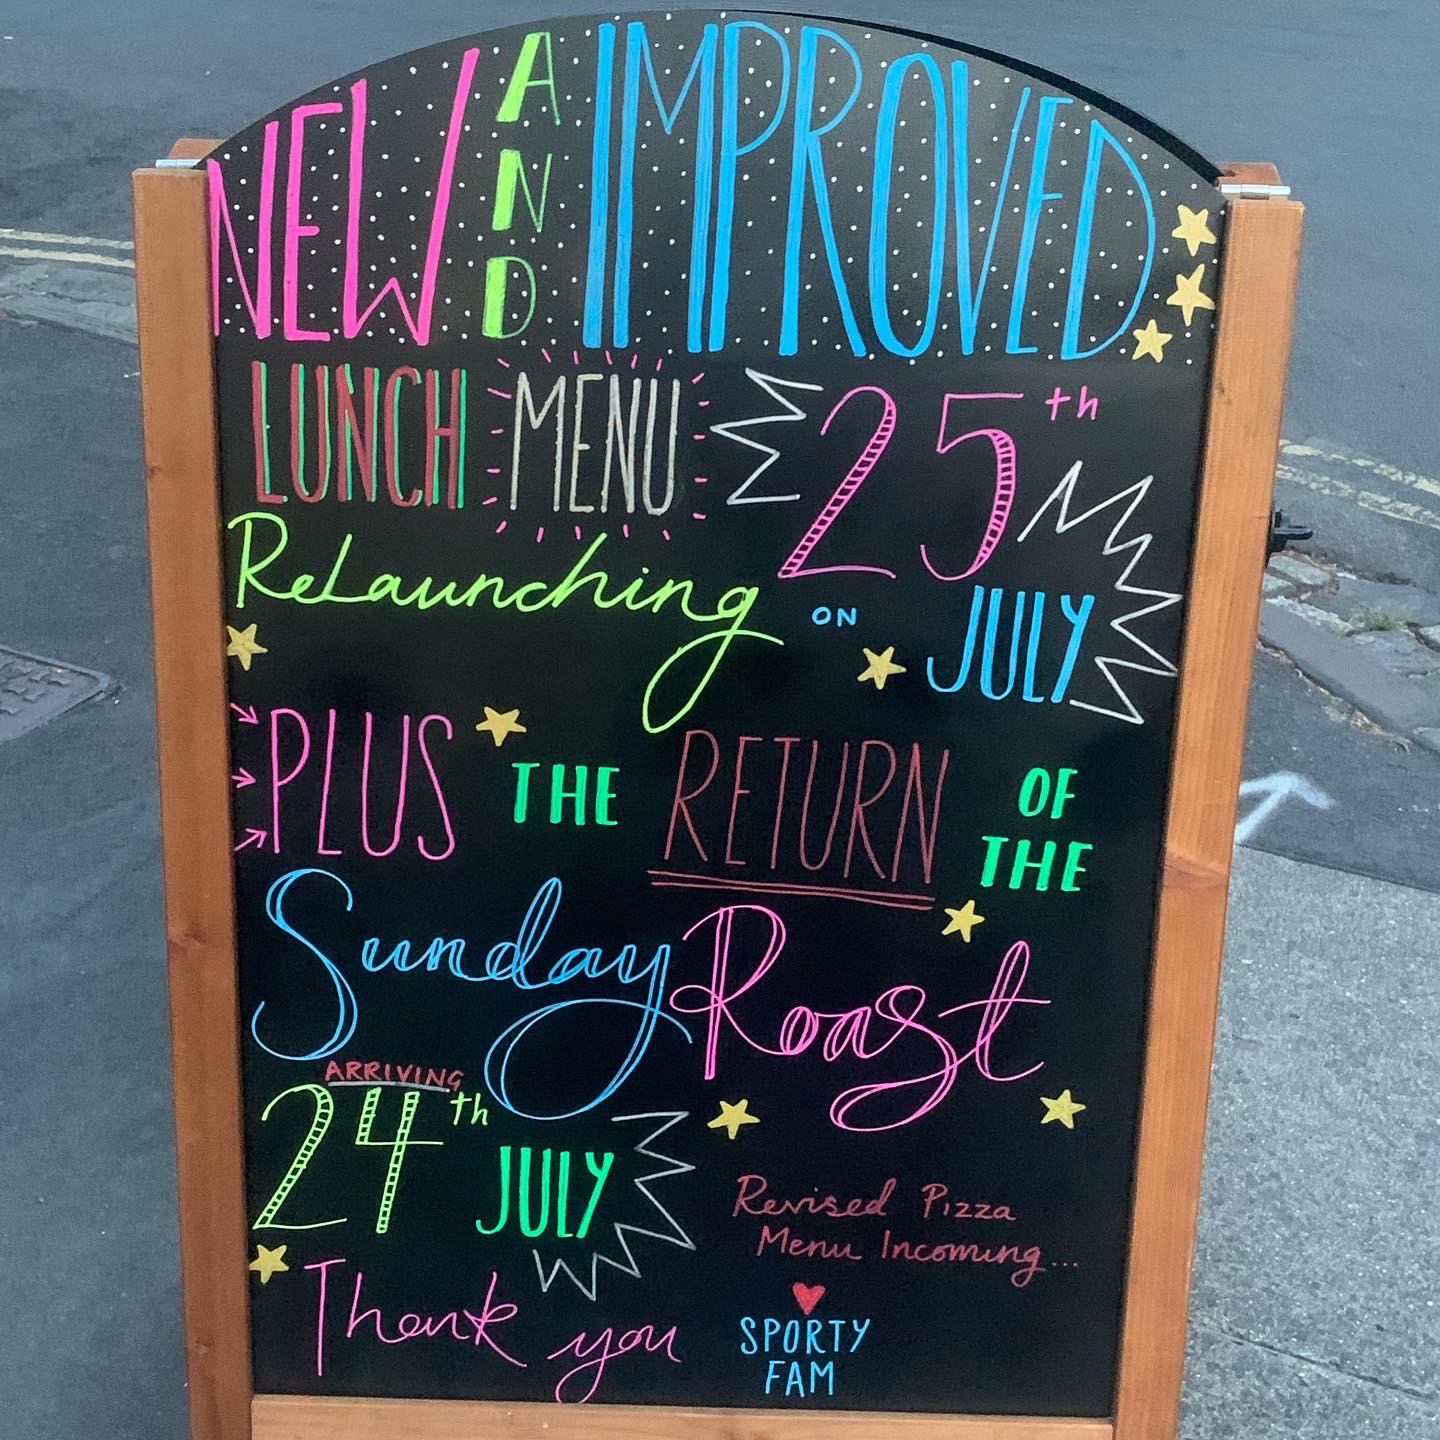 NEW AND IMPROVED
LUNCH MENU
ReLaunching ON 25th JULY
PLUS THE RETURN OF THE
Sunday Roast
ARRIVING
24th JULY
Revised Pizza
Menu Incoming...
Thank you
SPORTY
FAM